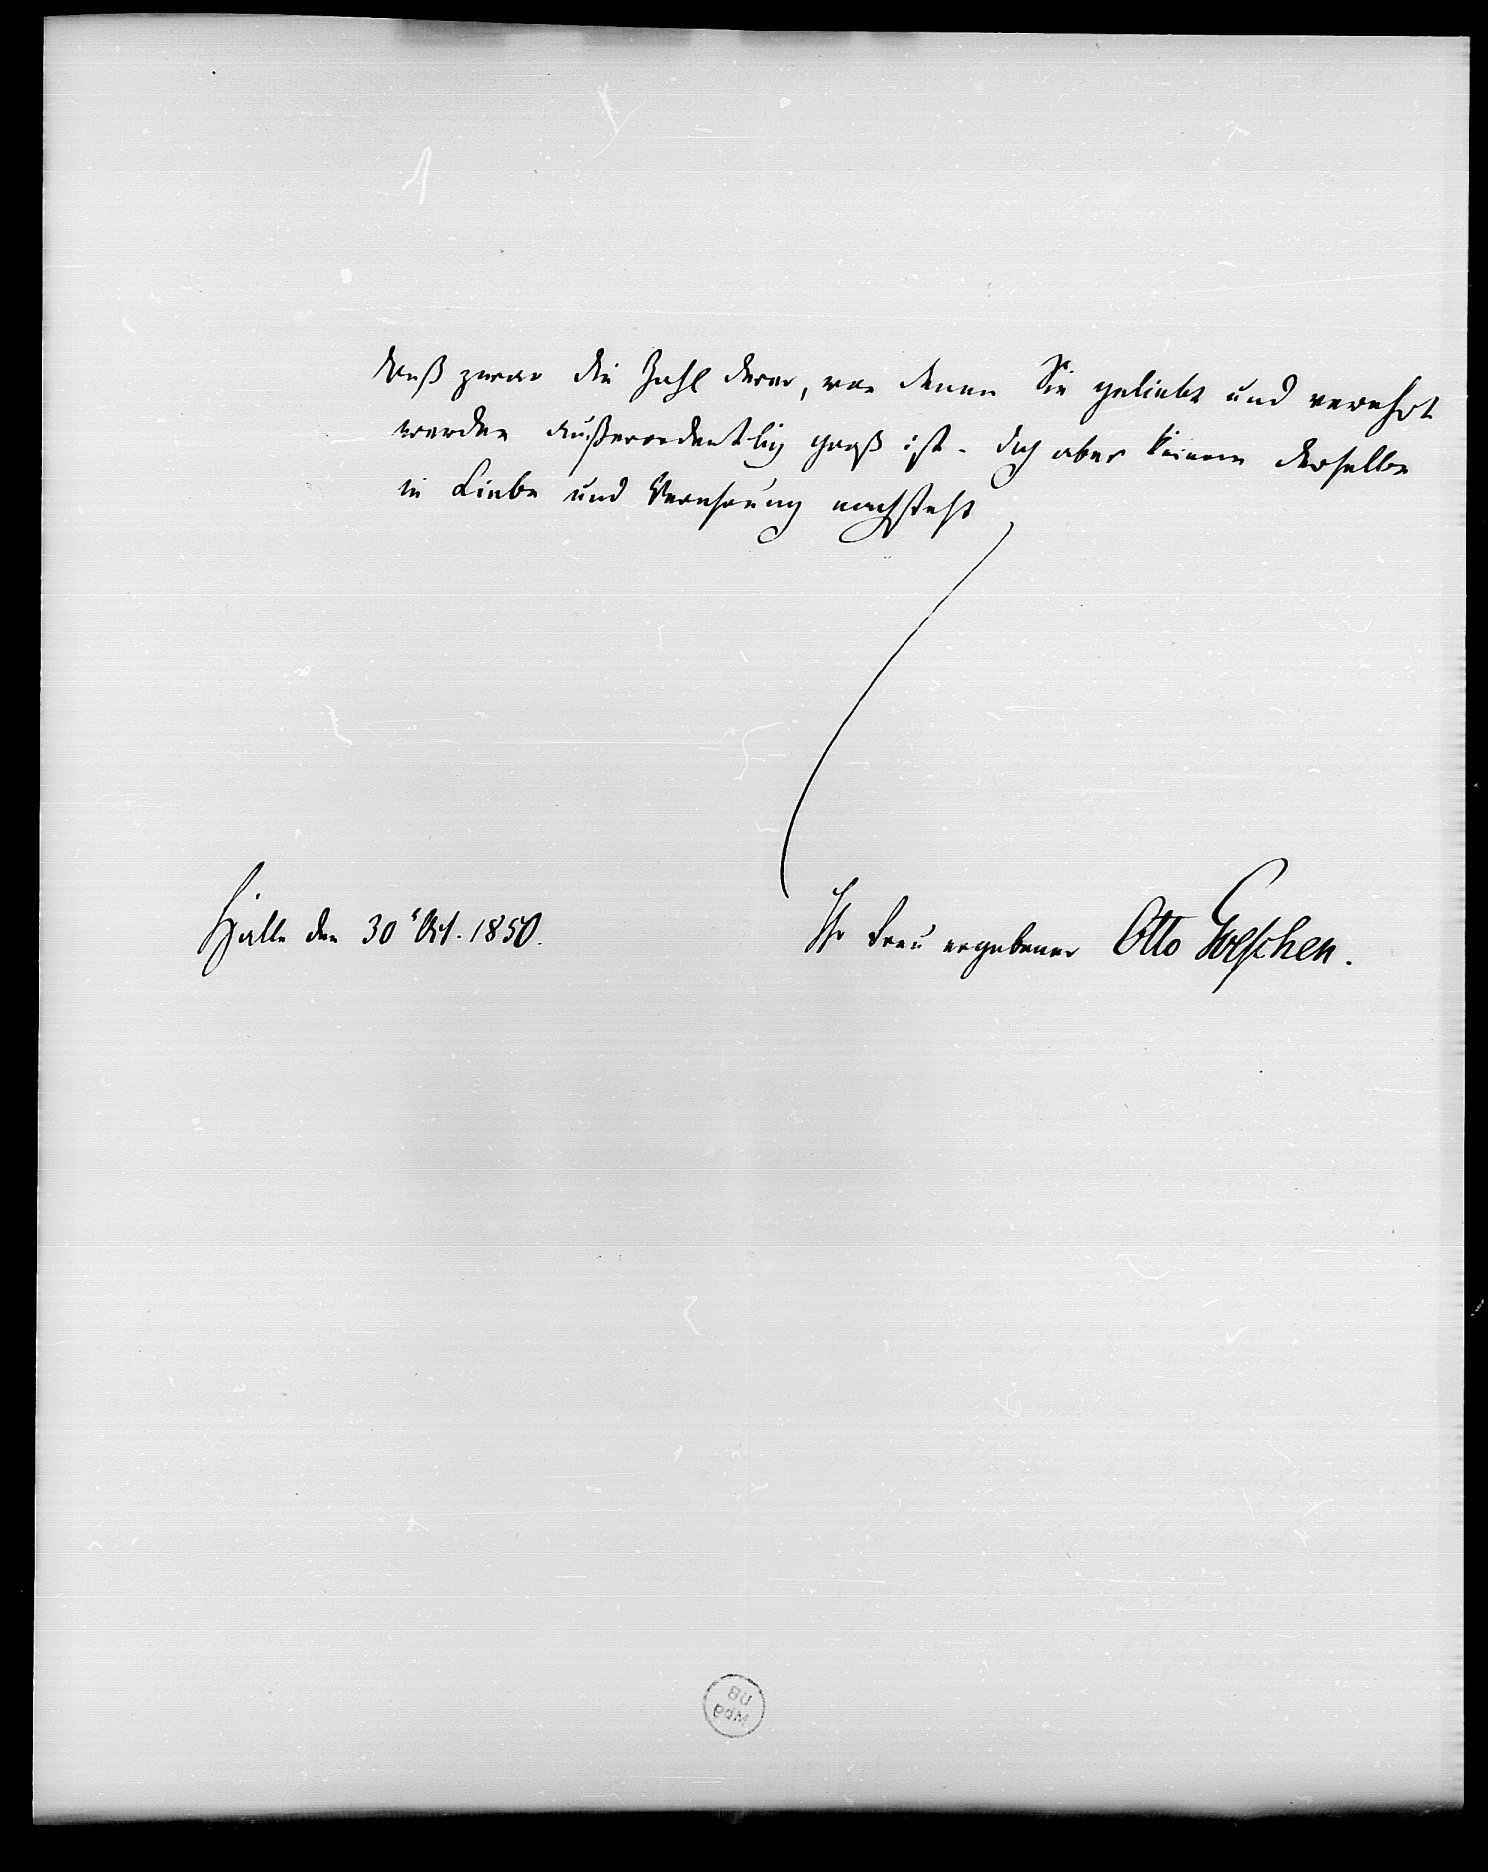 daß zwar die Zahl derer, von denen Sie geliebt und verehrt
werden außerordentlich groß ist - daß aber keinem derselben
in Liebe und Verehrung nachsteht
Halle den 30st Oct. 1850.
Ihr treu ergebener Otto Goeschen.